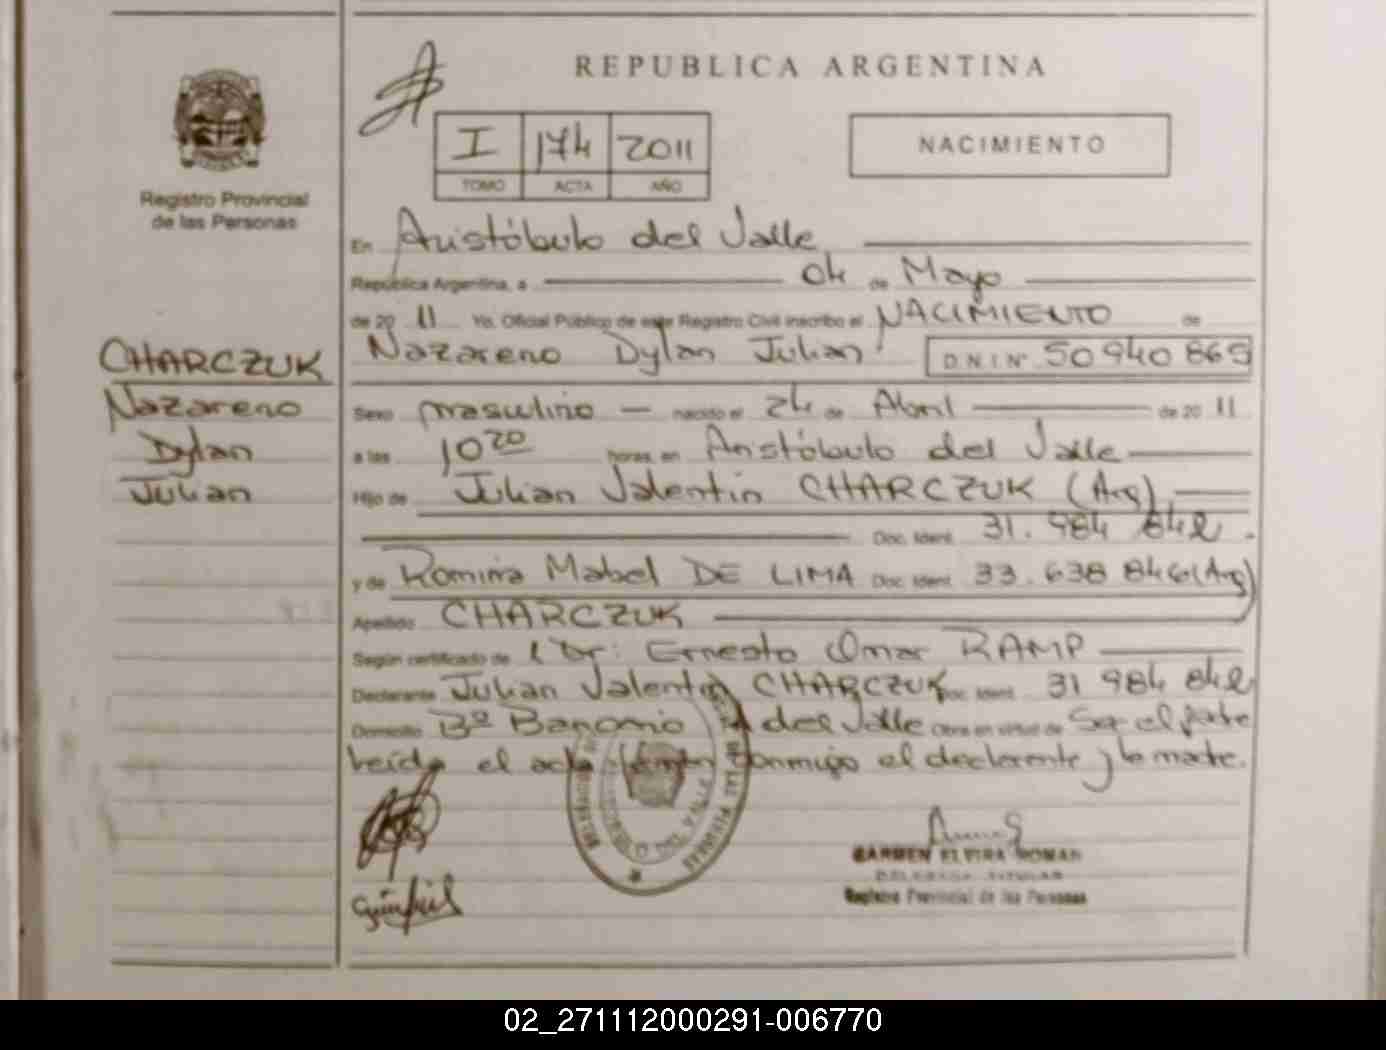 REPUBLICA ARGENTINA
I 174 2011
TOMO ACTA AÑO
NACIMIENTO
Registro Provincial
de las Personas
En Aristóbulo del Valle
República Argentina, a 04 de Mayo
de 20 11 Yo, Oficial Público de este Registro Civil inscribo el NACIMIENTO de
Nazareno Dylan Julian D.N.I Nº 50940865
CHARCZUK
Nazareno
Dylan
Julian
Sexo masculino — nacido el 24 de Abril de 20 11
a las 10 20 horas, en Aristóbulo del Valle
Hijo de Julian Valentin CHARCZUK (Arg)
Doc. Ident. 31.984 842
y de Romina Mabel DE LIMA Doc. Ident. 33.638 846 (Arg)
Apellido CHARCZUK
Según certificado de Dr: Ernesto Omar RAMP
Declarante Julian Valentin CHARCZUK Doc. Ident. 31 984 842
Domicilio Bº del Valle Obra en virtud de Ser el padre
Leída el acta conmigo el declarante y la madre.
CARMEN ELVIRA ROMAN
DELEGADA TITULAR
Registro Provincial de las Personas
02_271112000291-006770